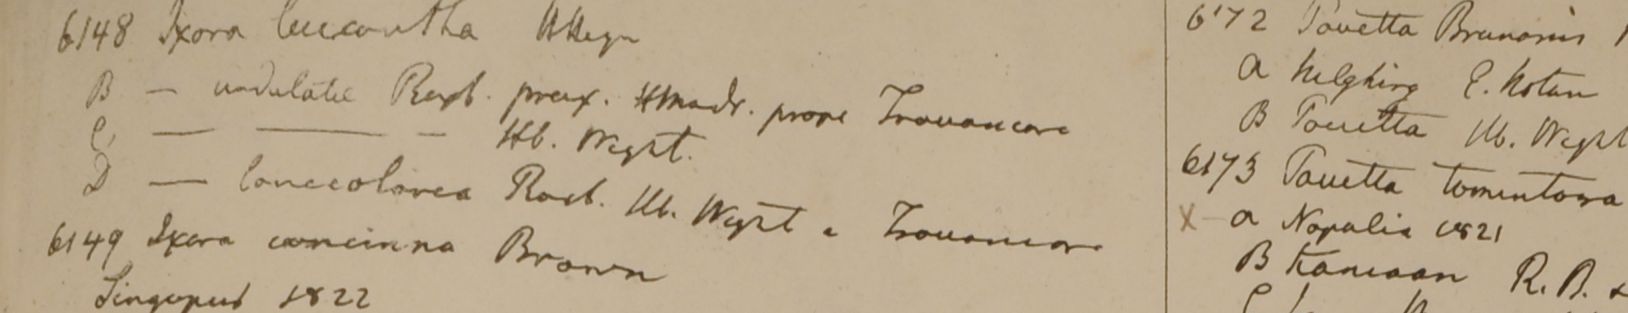 6148 Ixora leucantha HHeyn
B — undulata Roxb. prox. HMadr. prope Travancore
C — — — Hb. Wight.
D — lanceolarea Roxb. Hb. Wight e Travancore
6149 Ixora concinna Brown
Singapur 1822
6172 Pavetta Brunonis
a E. Noton
B Pavetta Hb. Wight
6173 Pavetta tomentosa
X a Napalia 1821
B R. B.